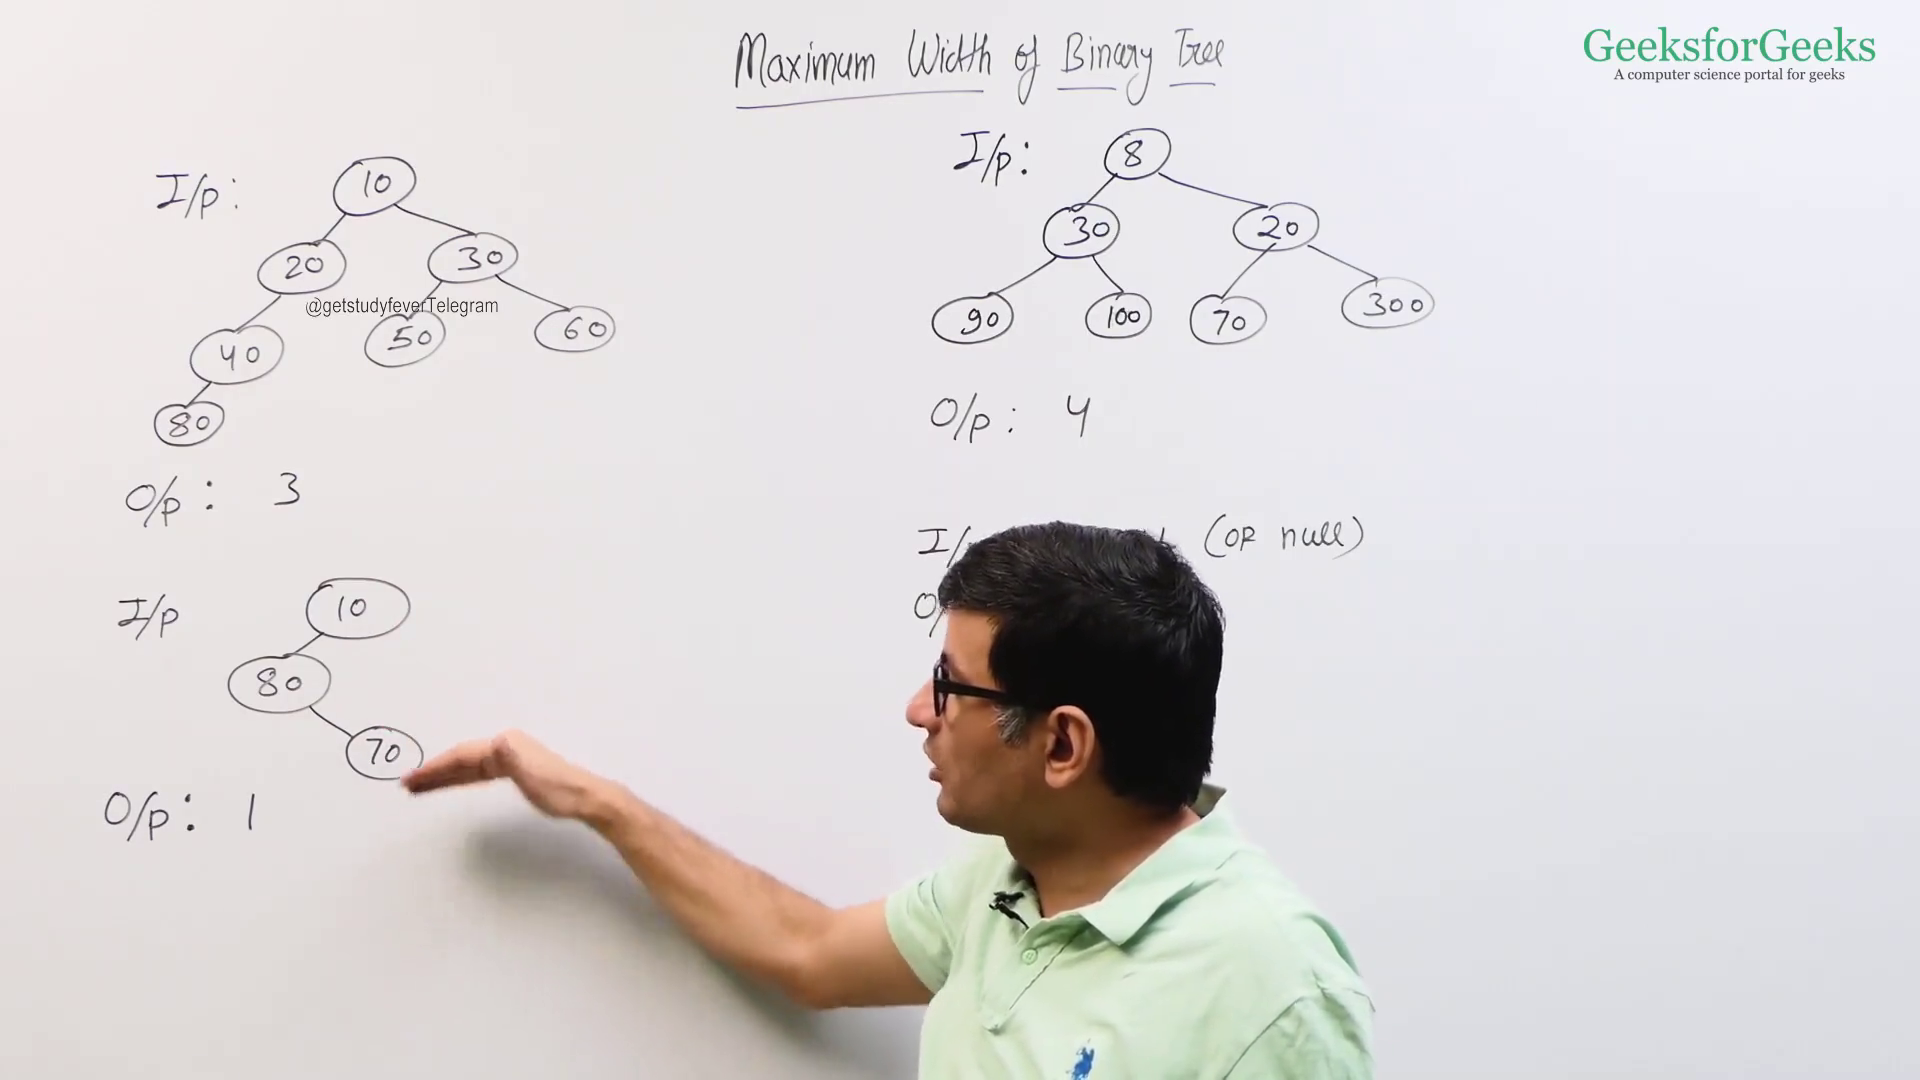 Maximum Width of Binary Tree
GeeksforGeeks
A computer science portal for geeks
I/p:
10
20
30
@getstudyfeverTelegram
40
50
60
80
O/p: 3
I/p:
8
30
20
90
100
70
300
O/p: 4
I/p
10
80
70
O/p: 1
(OR null)